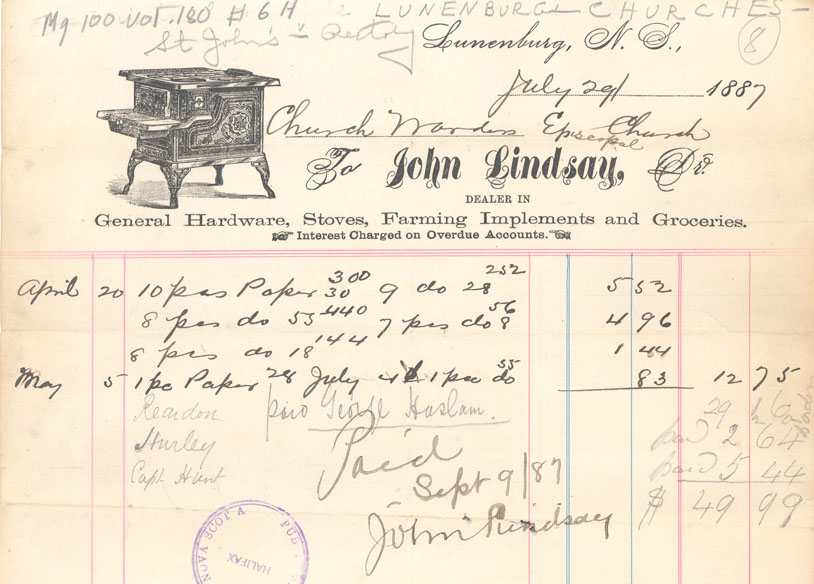 Mg 100 Vol. 180 # 6H LUNENBURG - CHURCHES -
St John's Rectory
8
Lunenburg, N. S.,
July 29 1887
Church Wardens Episcopal Church
To John Lindsay, Dr.
DEALER IN
General Hardware, Stoves, Farming Implements and Groceries.
Interest Charged on Overdue Accounts.
April 20 10 pcs Paper 30 300 9 do 28 252 5 52
8 pcs do 55 440 7 pcs do 8 56 4 96
8 pcs do 18 144 1 44
May 5 1 pc Paper 28 July 1 pc do 55 83 12 75
Reardon paid George Haslam. 29
Hurley paid 2 64
Capt Hunt paid 5 44
Paid $ 49 99
Sept 9/87
John Lindsay
NOVA SCOTIA PUB
HALIFAX